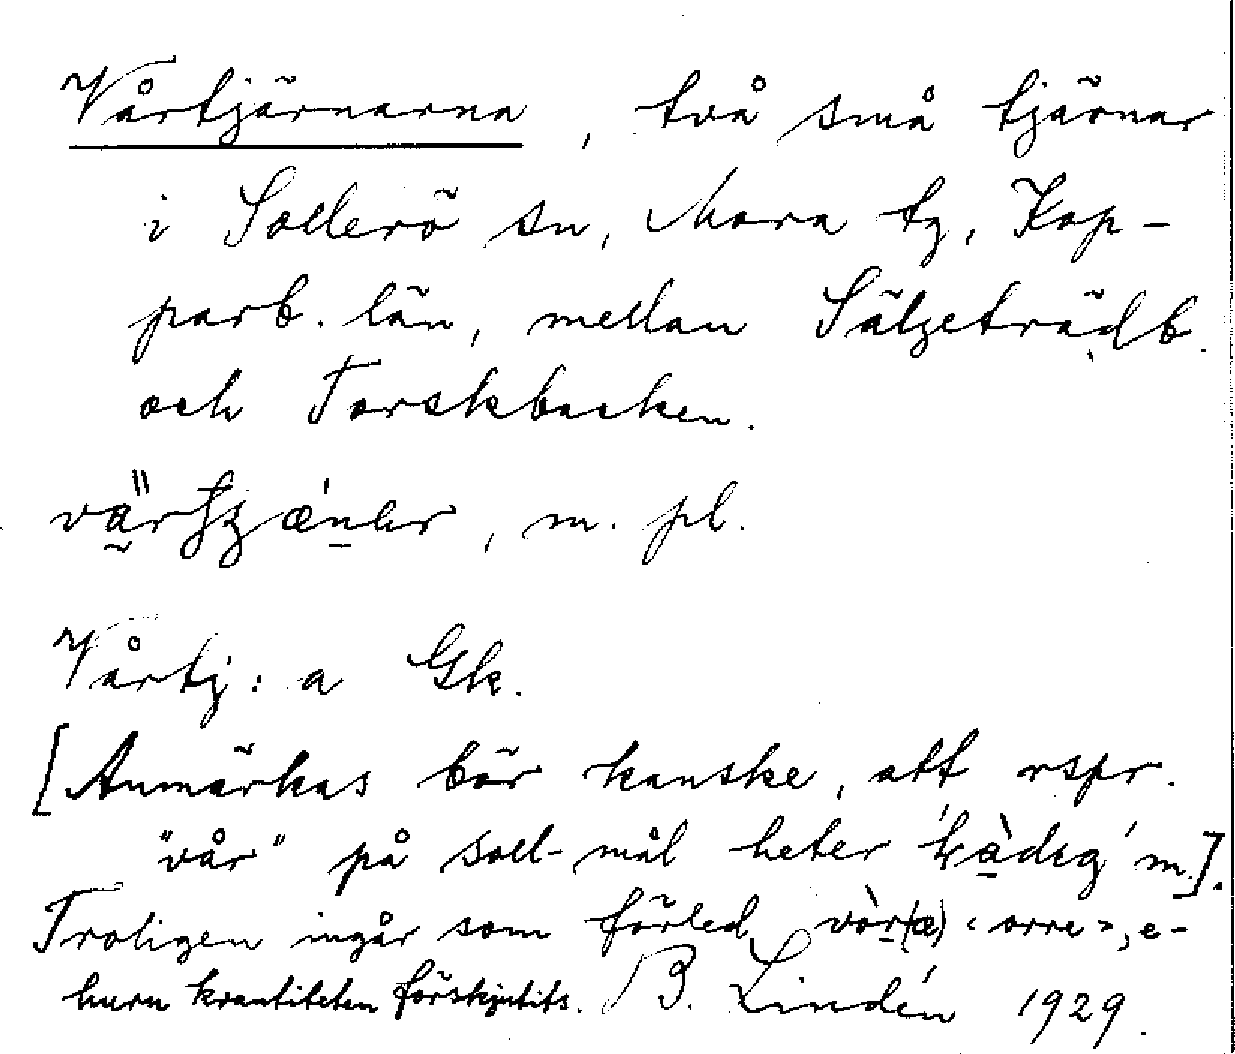 Vårtjärnarna, två små tjärnar
i Sollerö sn, Mora tg, Kop-
parb. län, mellan Sälgeträdb.
och Torskbacken.
m. pl.
Vårtj: a Gk.
[Anmärkas bör kanske, att rspr.
"vår" på soll-målheter m.].
Troligen ingår som förled vòr(æ) 'orre', e-
huru kvantiteten förskjutits. B. Lindén 1929.